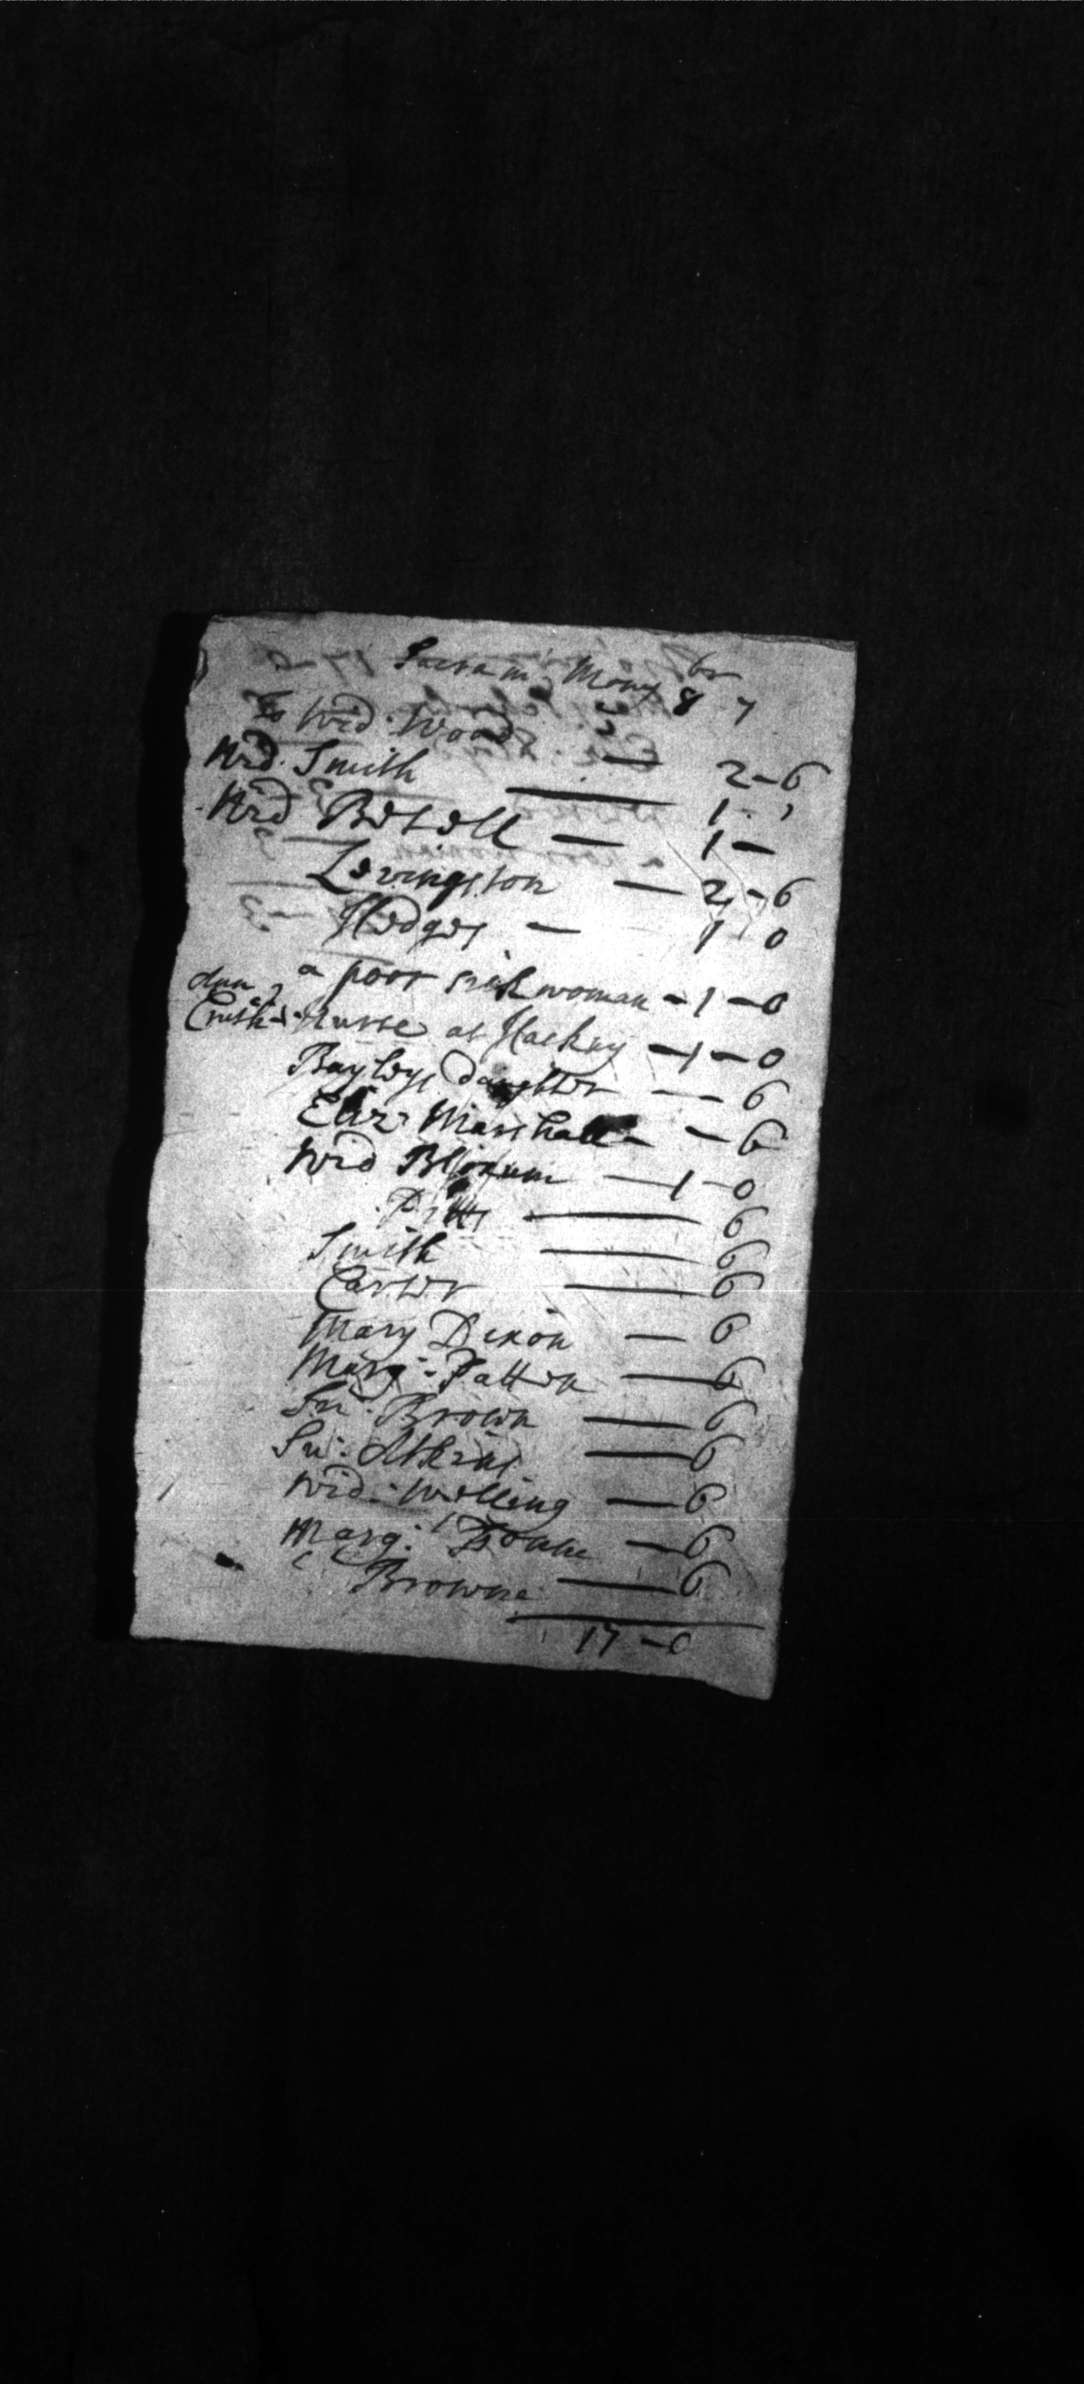 Sacram: Mony 8br 7
To Wid. Wood — 2-6
Wid. Smith — 1
Wid Betell — 1 —
Levingston — 2-6
Hedges — 1 0
a poor sick woman - 1 - 0
Nurse at Hackny - 1 - 0
Bayleys daughter — 6
Eliz: Marshall — 6
Wid Bloxum — 1 - 0
Pitts — 6
Smith — 6
Carter — 6
Mary Dixon — 6
Marg: Patten — 6
Su: Brown — 6
Su: Atkins — 6
Wid: Welling — 6
Marg: — 6
Browne — 6
17 - 0